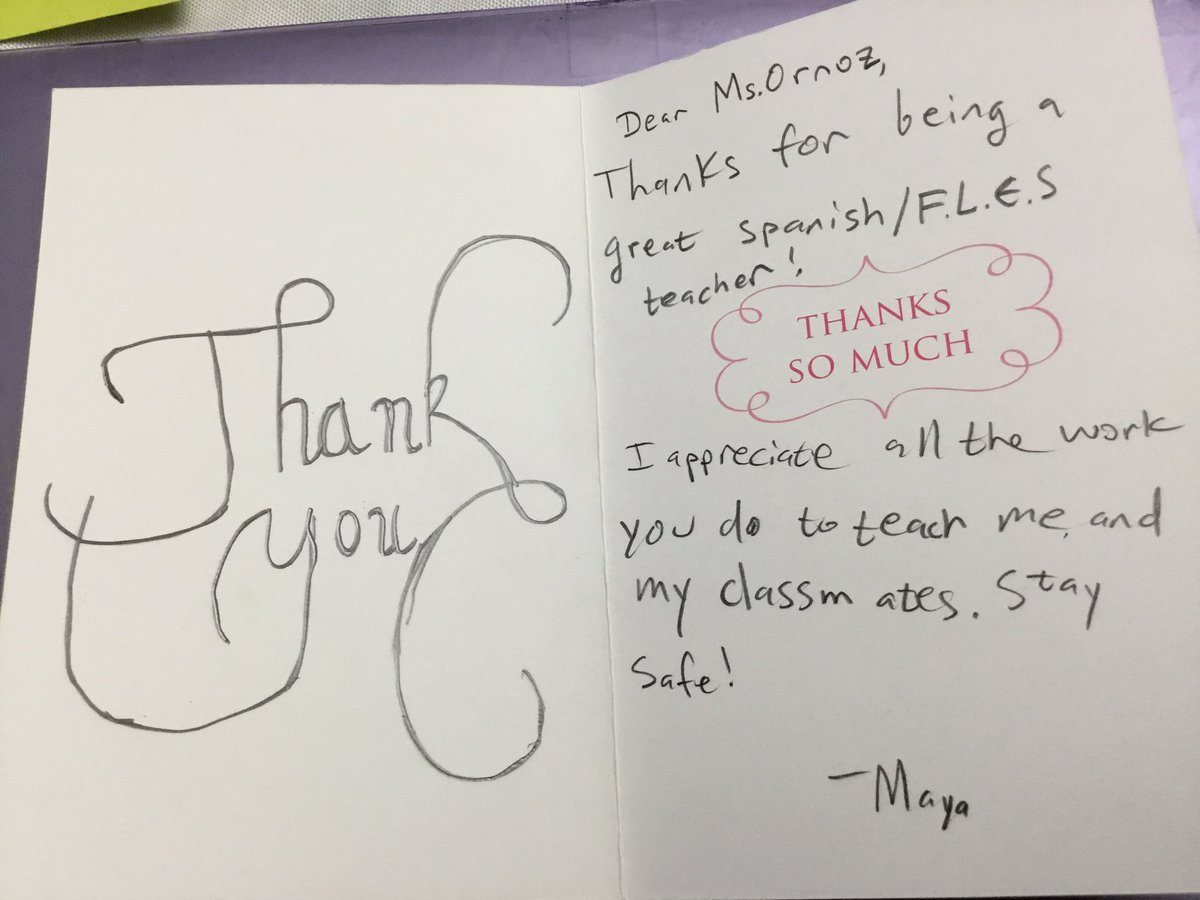 Thank
you
Dear Ms. Ornoz,
Thanks for being a
great Spanish/F.L.E.S
teacher!
THANKS
SO MUCH
I appreciate all the work
you do to teach me and
my classmates. Stay
Safe!
—Maya